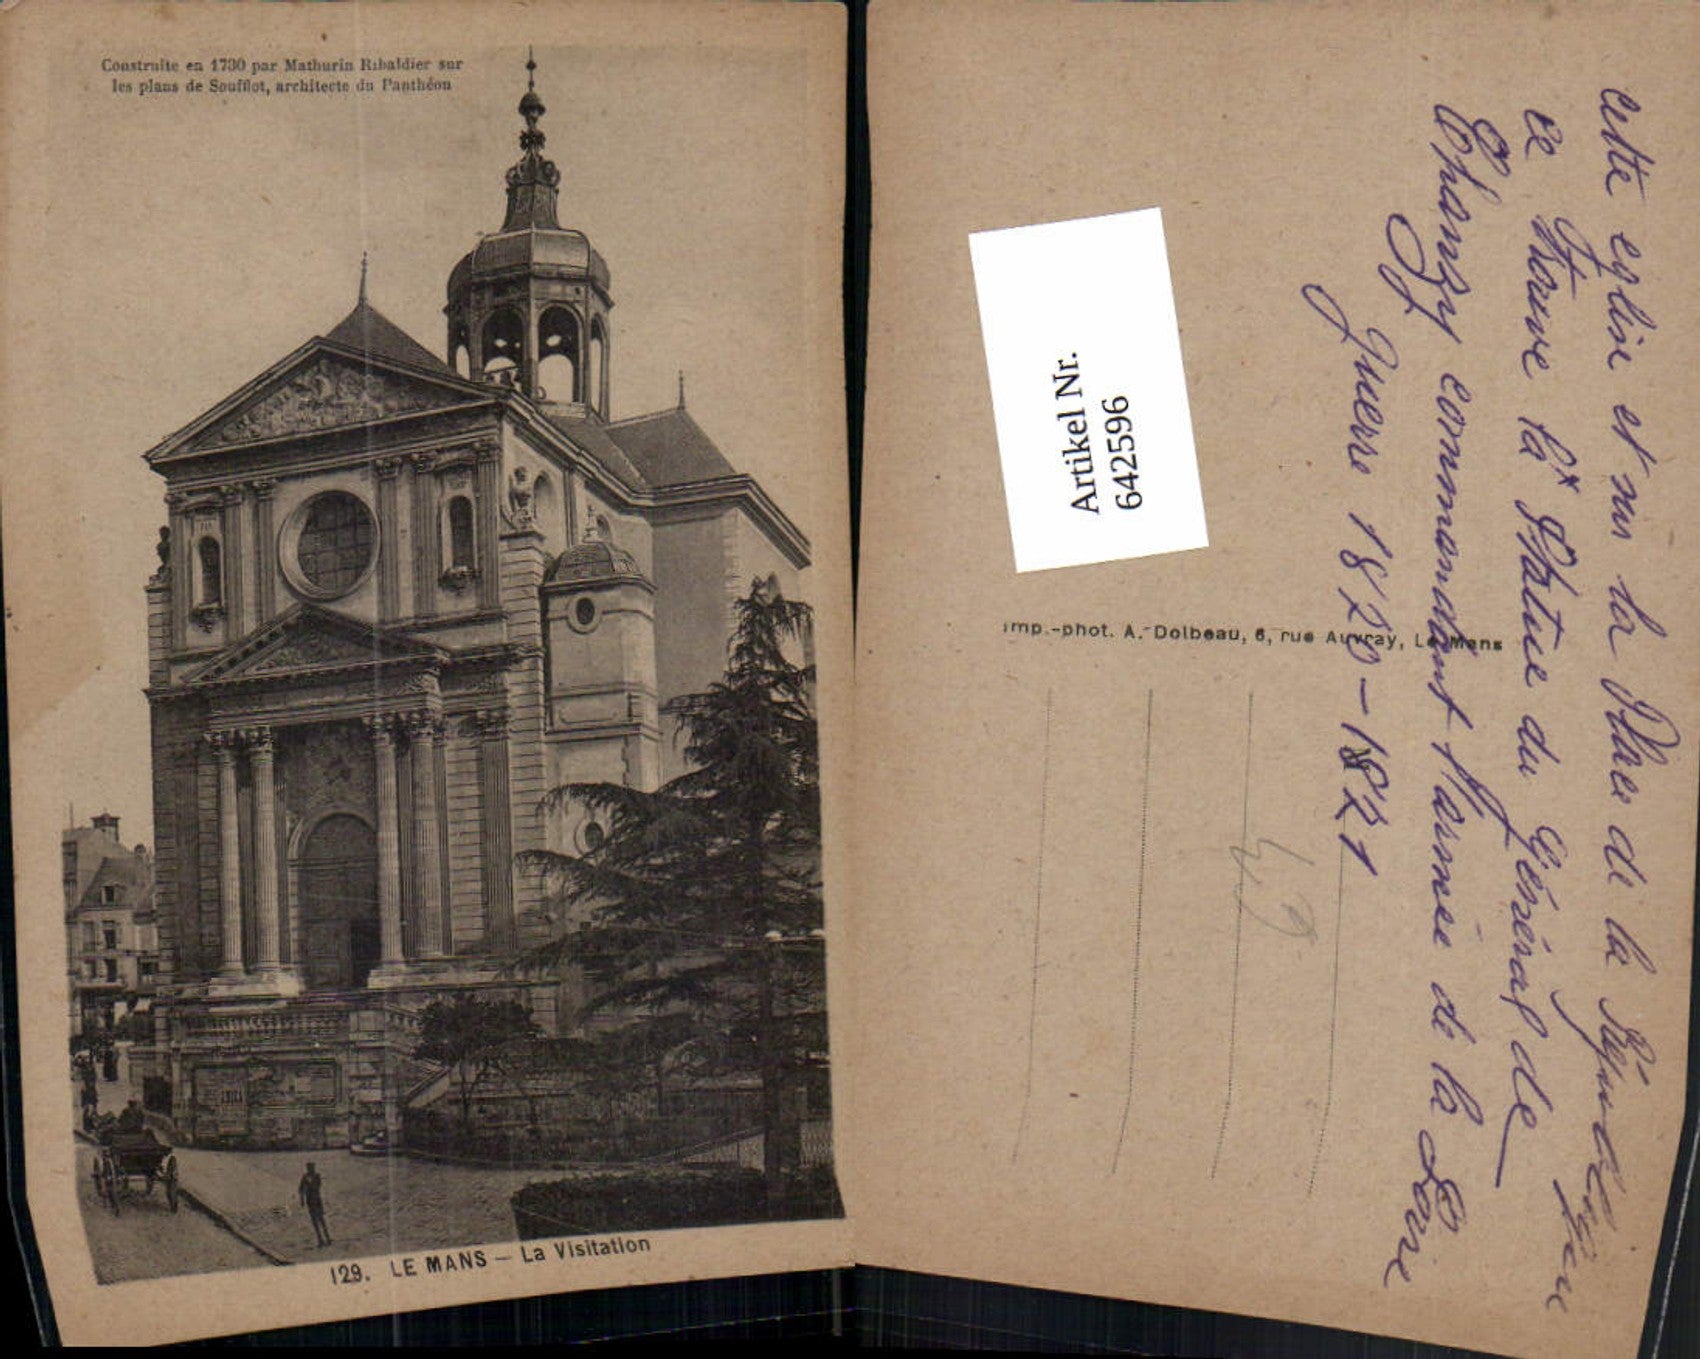 Construite en 1730 par Mathurin Ribaldier sur
les plans de Soufflot, architecte du Panthéon
129. LE MANS — La Visitation
Artikel Nr.
642596
Imp.-phot. A. Dolbeau, 6, rue Auvray, Le Mans
cette eglise et sur la Place de la République
ce trouve la Statue du Général de
Chanzy commandant l'armée de la Loire
Guerre 1870-1871